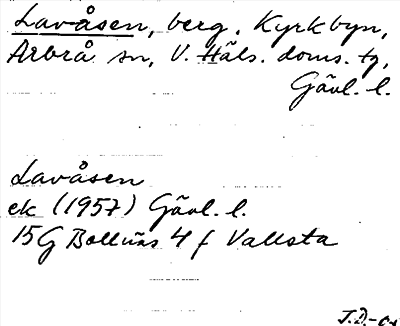 Lavåsen, berg, Kyrkbyn,
Arbrå sn, V. Häls. doms. tg,
Gävl. l.
Lavåsen
ek (1957) Gävl. l.
15G Bollnäs 4 f Vallsta